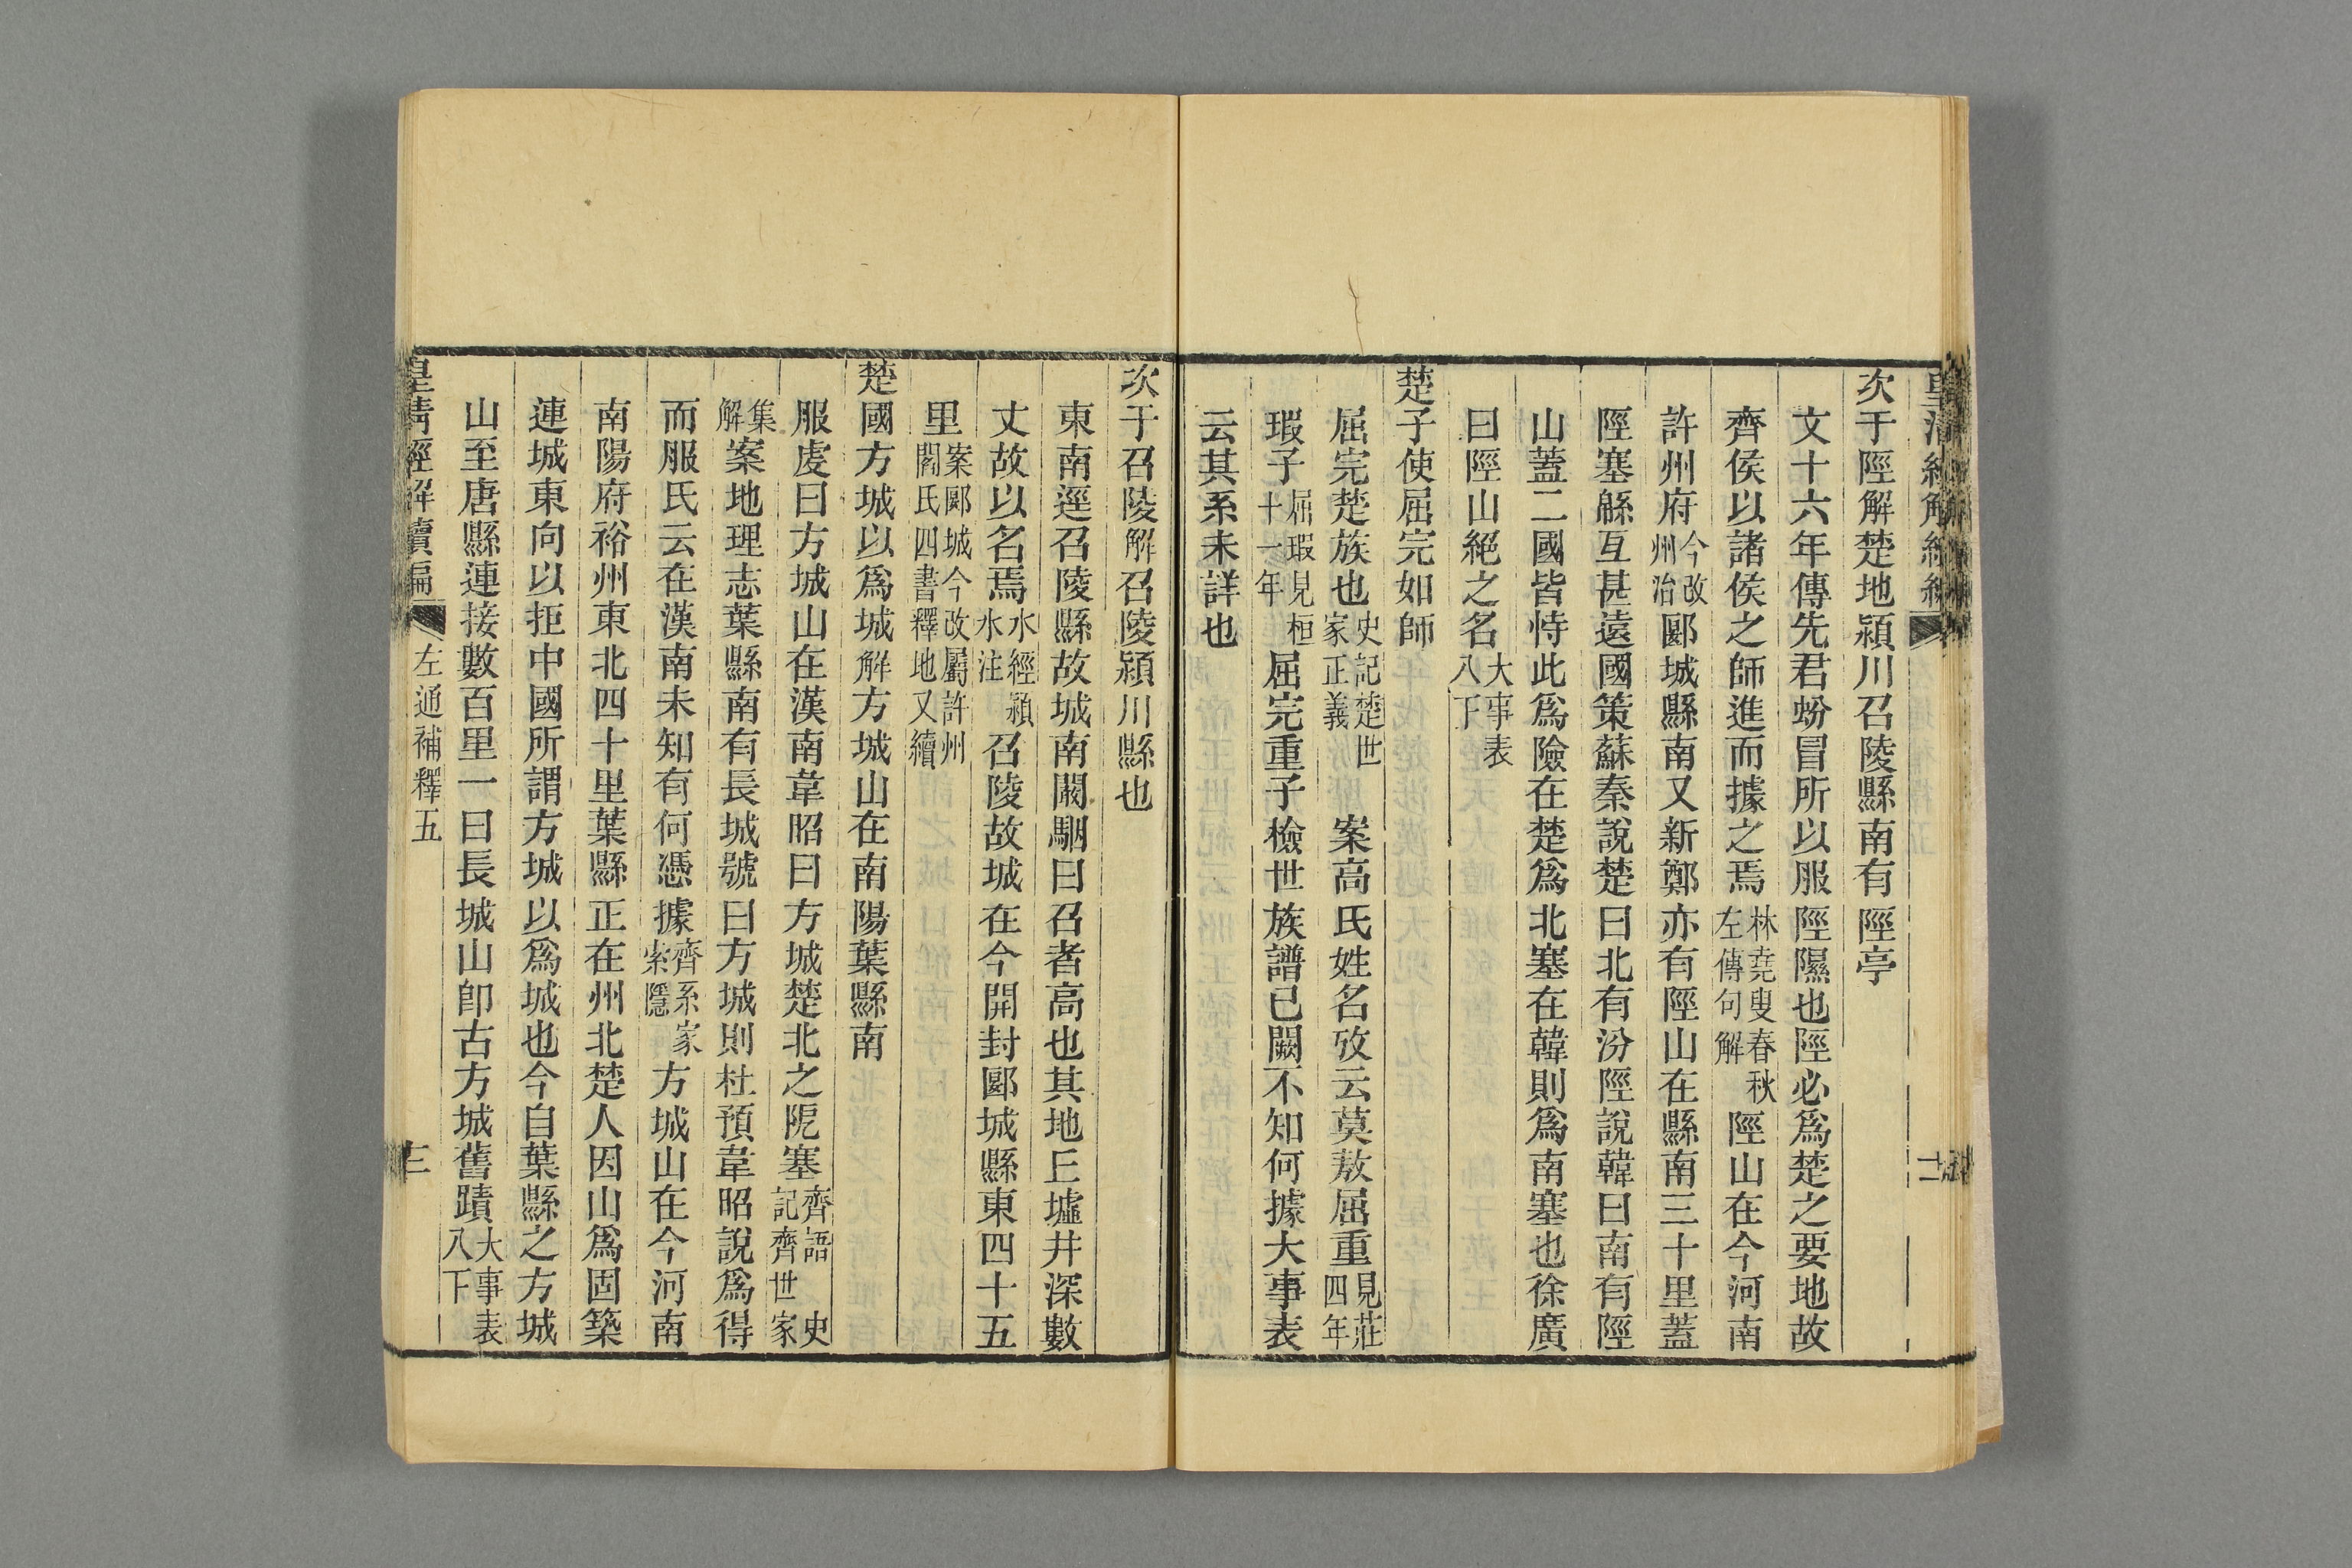 次于陘解楚地潁川召陵縣南有陘亭
文十六年傳先君蚡冒所以服陘隰也陘必爲楚之要地故
齊侯以諸侯之師進而據之焉林堯叟春秋左傳句解陘山在今河南
許州府今改州治郾城縣南又新鄭亦有陘山在縣南三十里蓋
陘塞緜互甚遠國策蘇秦說楚曰北有汾陘說韓曰南有陘
山蓋二國皆恃此爲險在楚爲北塞在韓則爲南塞也徐廣
曰陘山絕之名大事表八下
楚子使屈完如師
屈完楚族也史記楚世家正義案高氏姓名攷云莫敖屈重見莊四年
瑕子屈瑕見桓十一年屈完重子檢世族譜已闕不知何據大事表
云其系未詳也
次于召陵解召陵潁川縣也
東南逕召陵縣故城南闞駰曰召者高也其地丘墟井深數
丈故以名焉水經潁水注召陵故城在今開封郾城縣東四十五
里案郾城今改屬許州閻氏四書釋地又續
楚國方城以爲城解方城山在南陽葉縣南
服虔曰方城山在漢南韋昭曰方城楚北之阸塞齊語史記齊世家
集解案地理志葉縣南有長城號曰方城則杜預韋昭說爲得
而服氏云在漢南未知有何憑據齊系家索隱方城山在今河南
南陽府裕州東北四十里葉縣正在州北楚人因山爲固築
連城東向以拒中國所謂方城以爲城也今自葉縣之方城
山至唐縣連接數百里一曰長城山卽古方城舊蹟大事表八下
皇清經解續編　左通補釋五　三